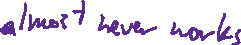 almost never works